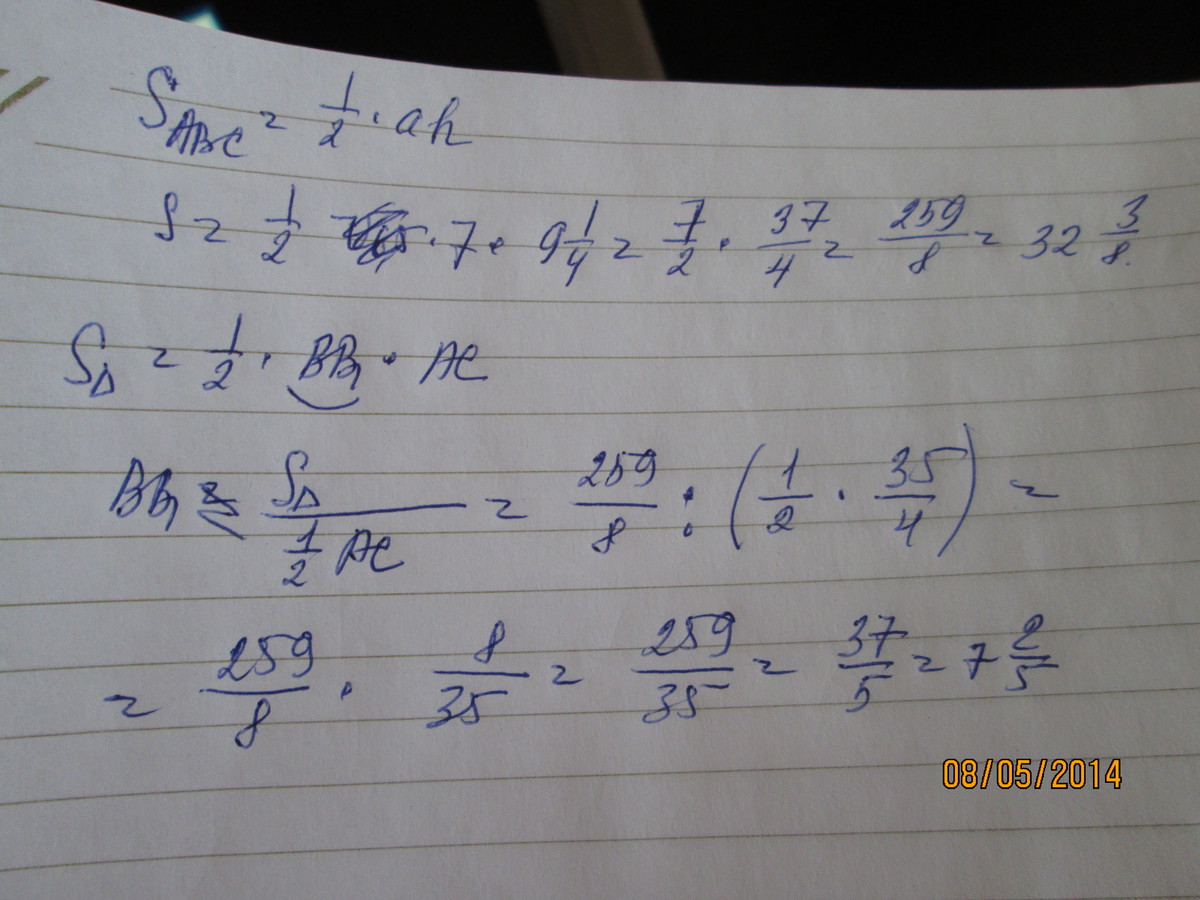 S_ABC = 1/2 · ah
S = 1/2 · 7 · 9 1/4 = 7/2 · 37/4 = 259/8 = 32 3/8.
S_Δ = 1/2 · BB₁ · AC
BB₁ = S_Δ / (1/2 AC) = 259/8 : (1/2 · 35/4) =
= 259/8 · 8/35 = 259/35 = 37/5 = 7 2/5
08/05/2014